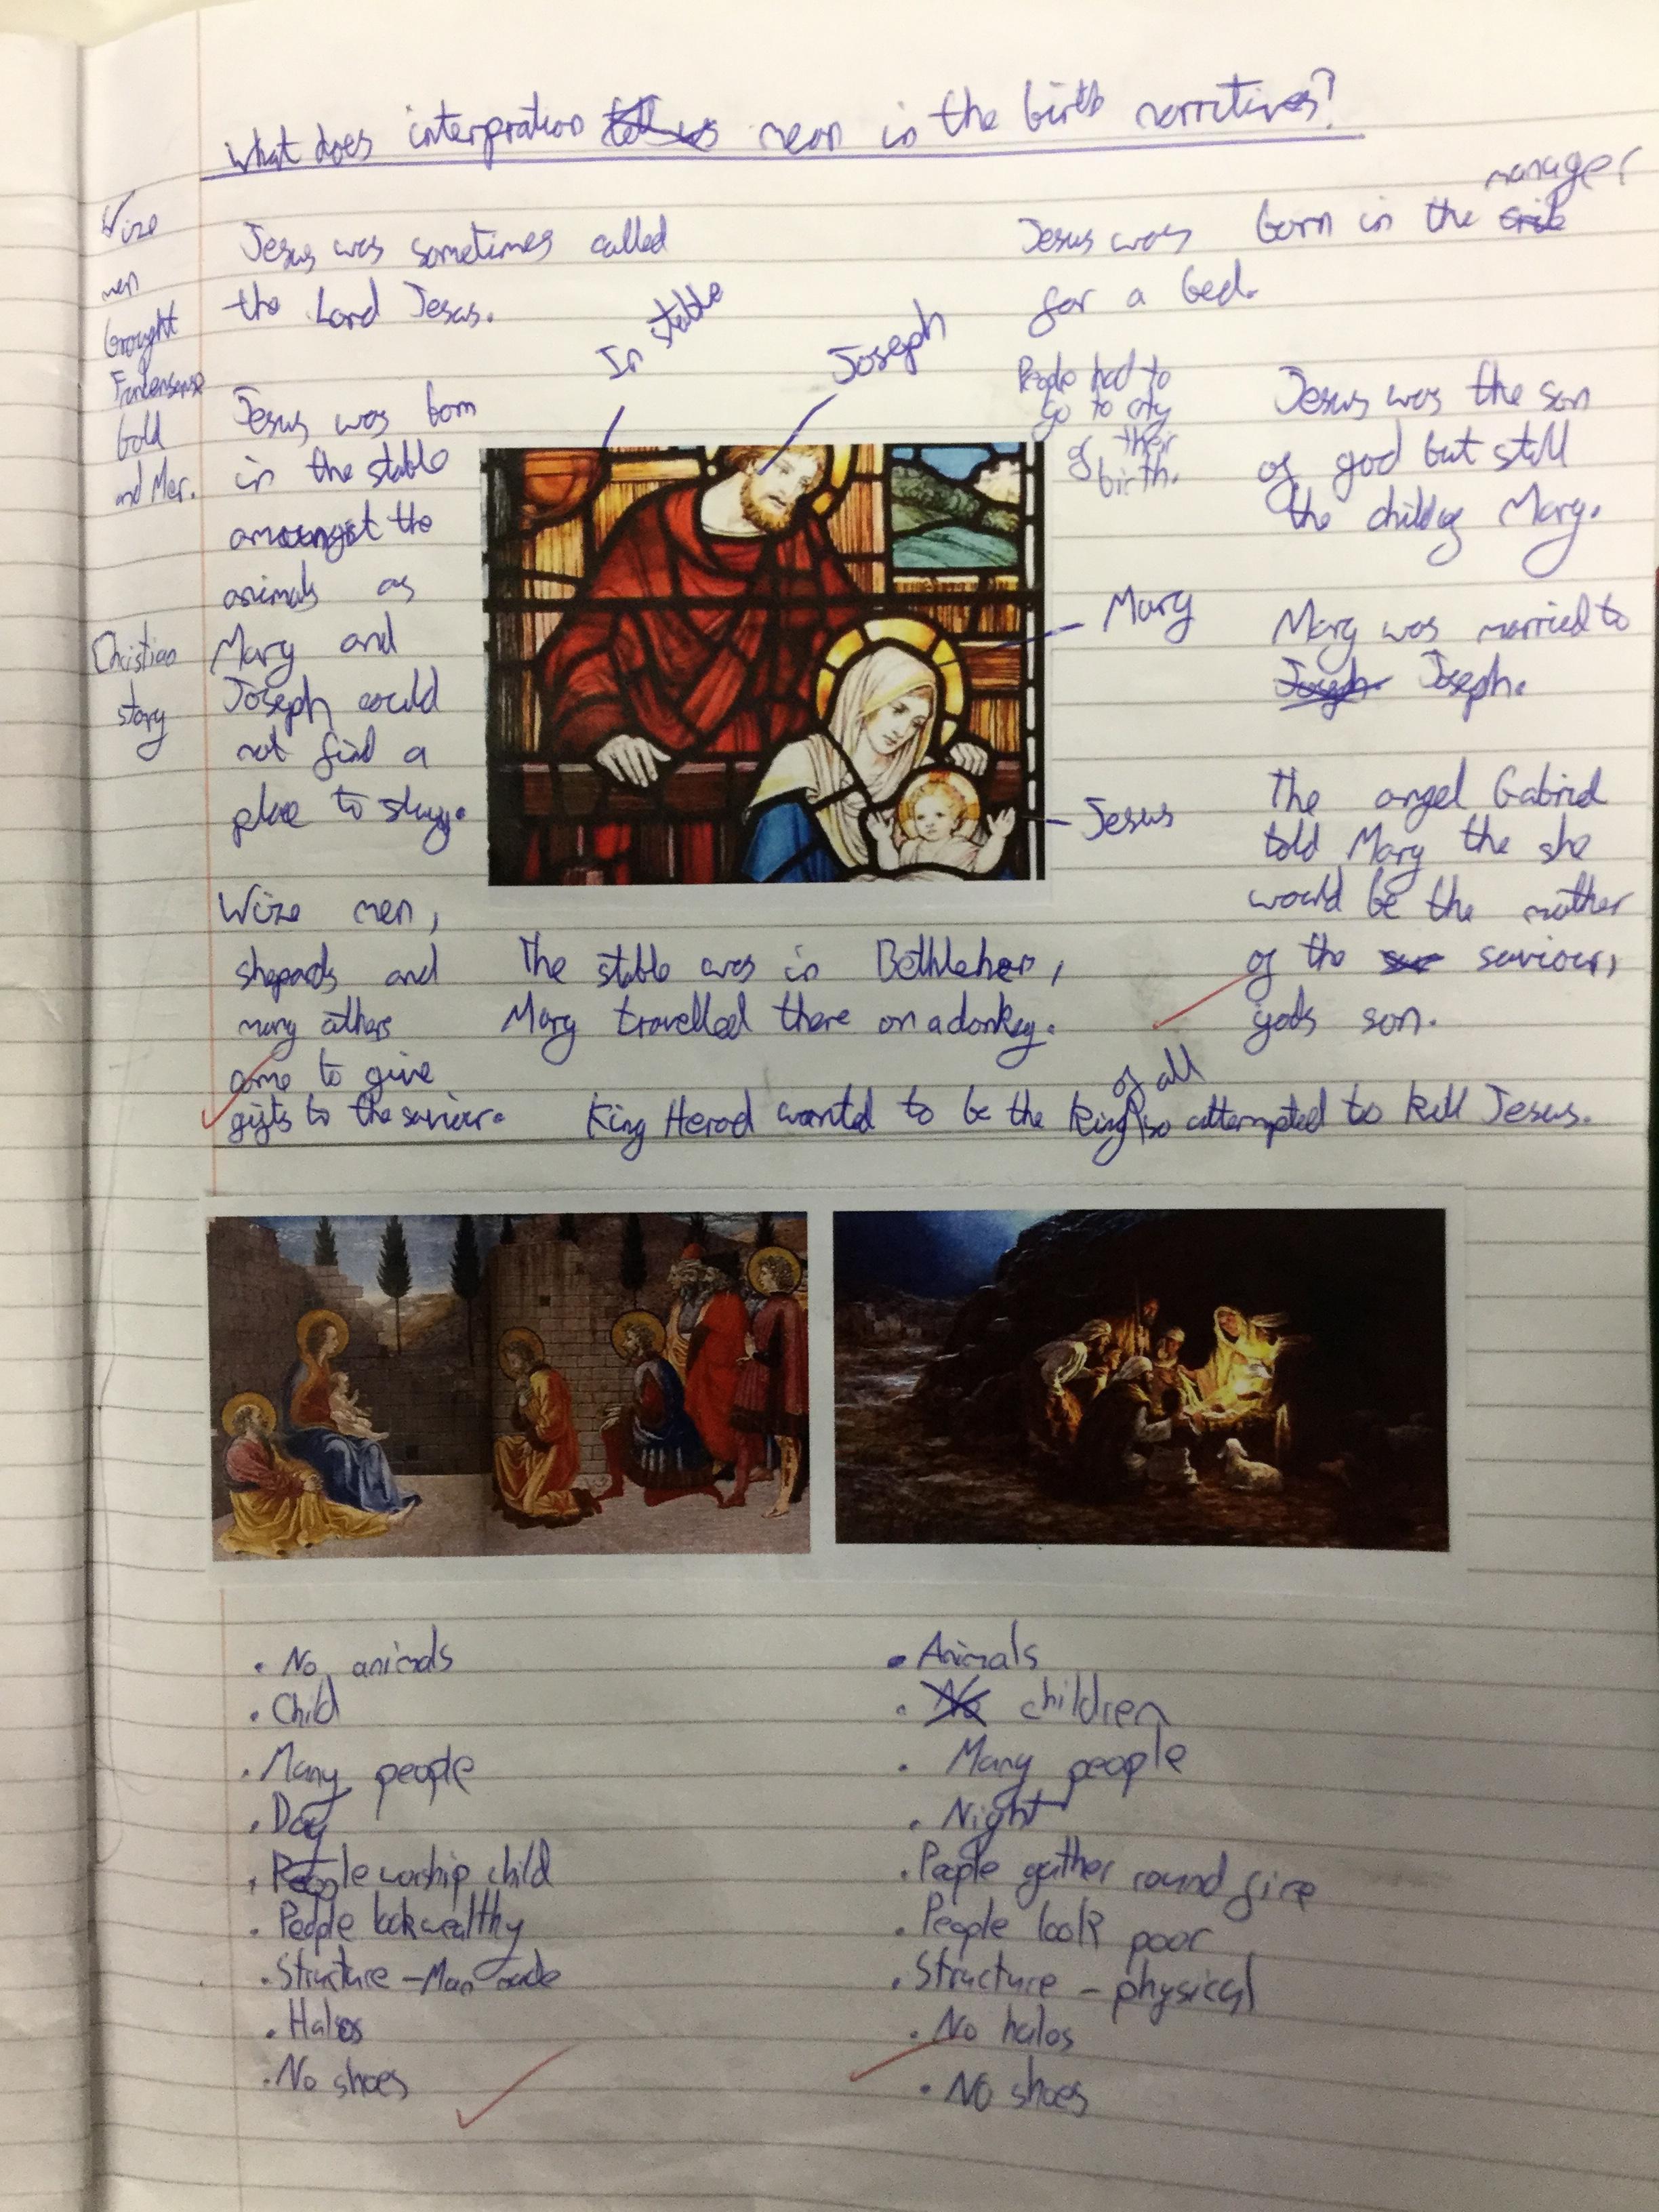 What does interpration tell us mean in the birth narritives?
Wize
men
brought
Frankensense
Gold
and Mer.
Christian
story
Jesus was sometimes called
the Lord Jesus.
Jesus was born
in the stable
amoungst the
animals as
Mary and
Joseph could
not find a
place to stay.
Wize men,
shepards and
many others
come to give
gifts to the saviour.
In stable
Joseph
Mary
Jesus
Jesus was born in the crib manager
for a bed.
People had to
go to city
of their
birth.
Jesus was the son
of god but still
the child of Mary.
Mary was married to
Joseph. Joseph.
The angel Gabriel
told Mary the she
would be the mother
of the saviour,
gods son.
The stable was in Bethlehem,
Mary travelled there on a donkey.
King Herod wanted to be the King of all so attempted to kill Jesus.
• No animals
• Child
• Many people
• Day
• People worship child
• People look wealthy
• Structure - Man made
• Halos
• No shoes
• Animals
• No children
• Many people
• Night
• People gather round fire
• People look poor
• Structure - physical
• No halos
• No shoes